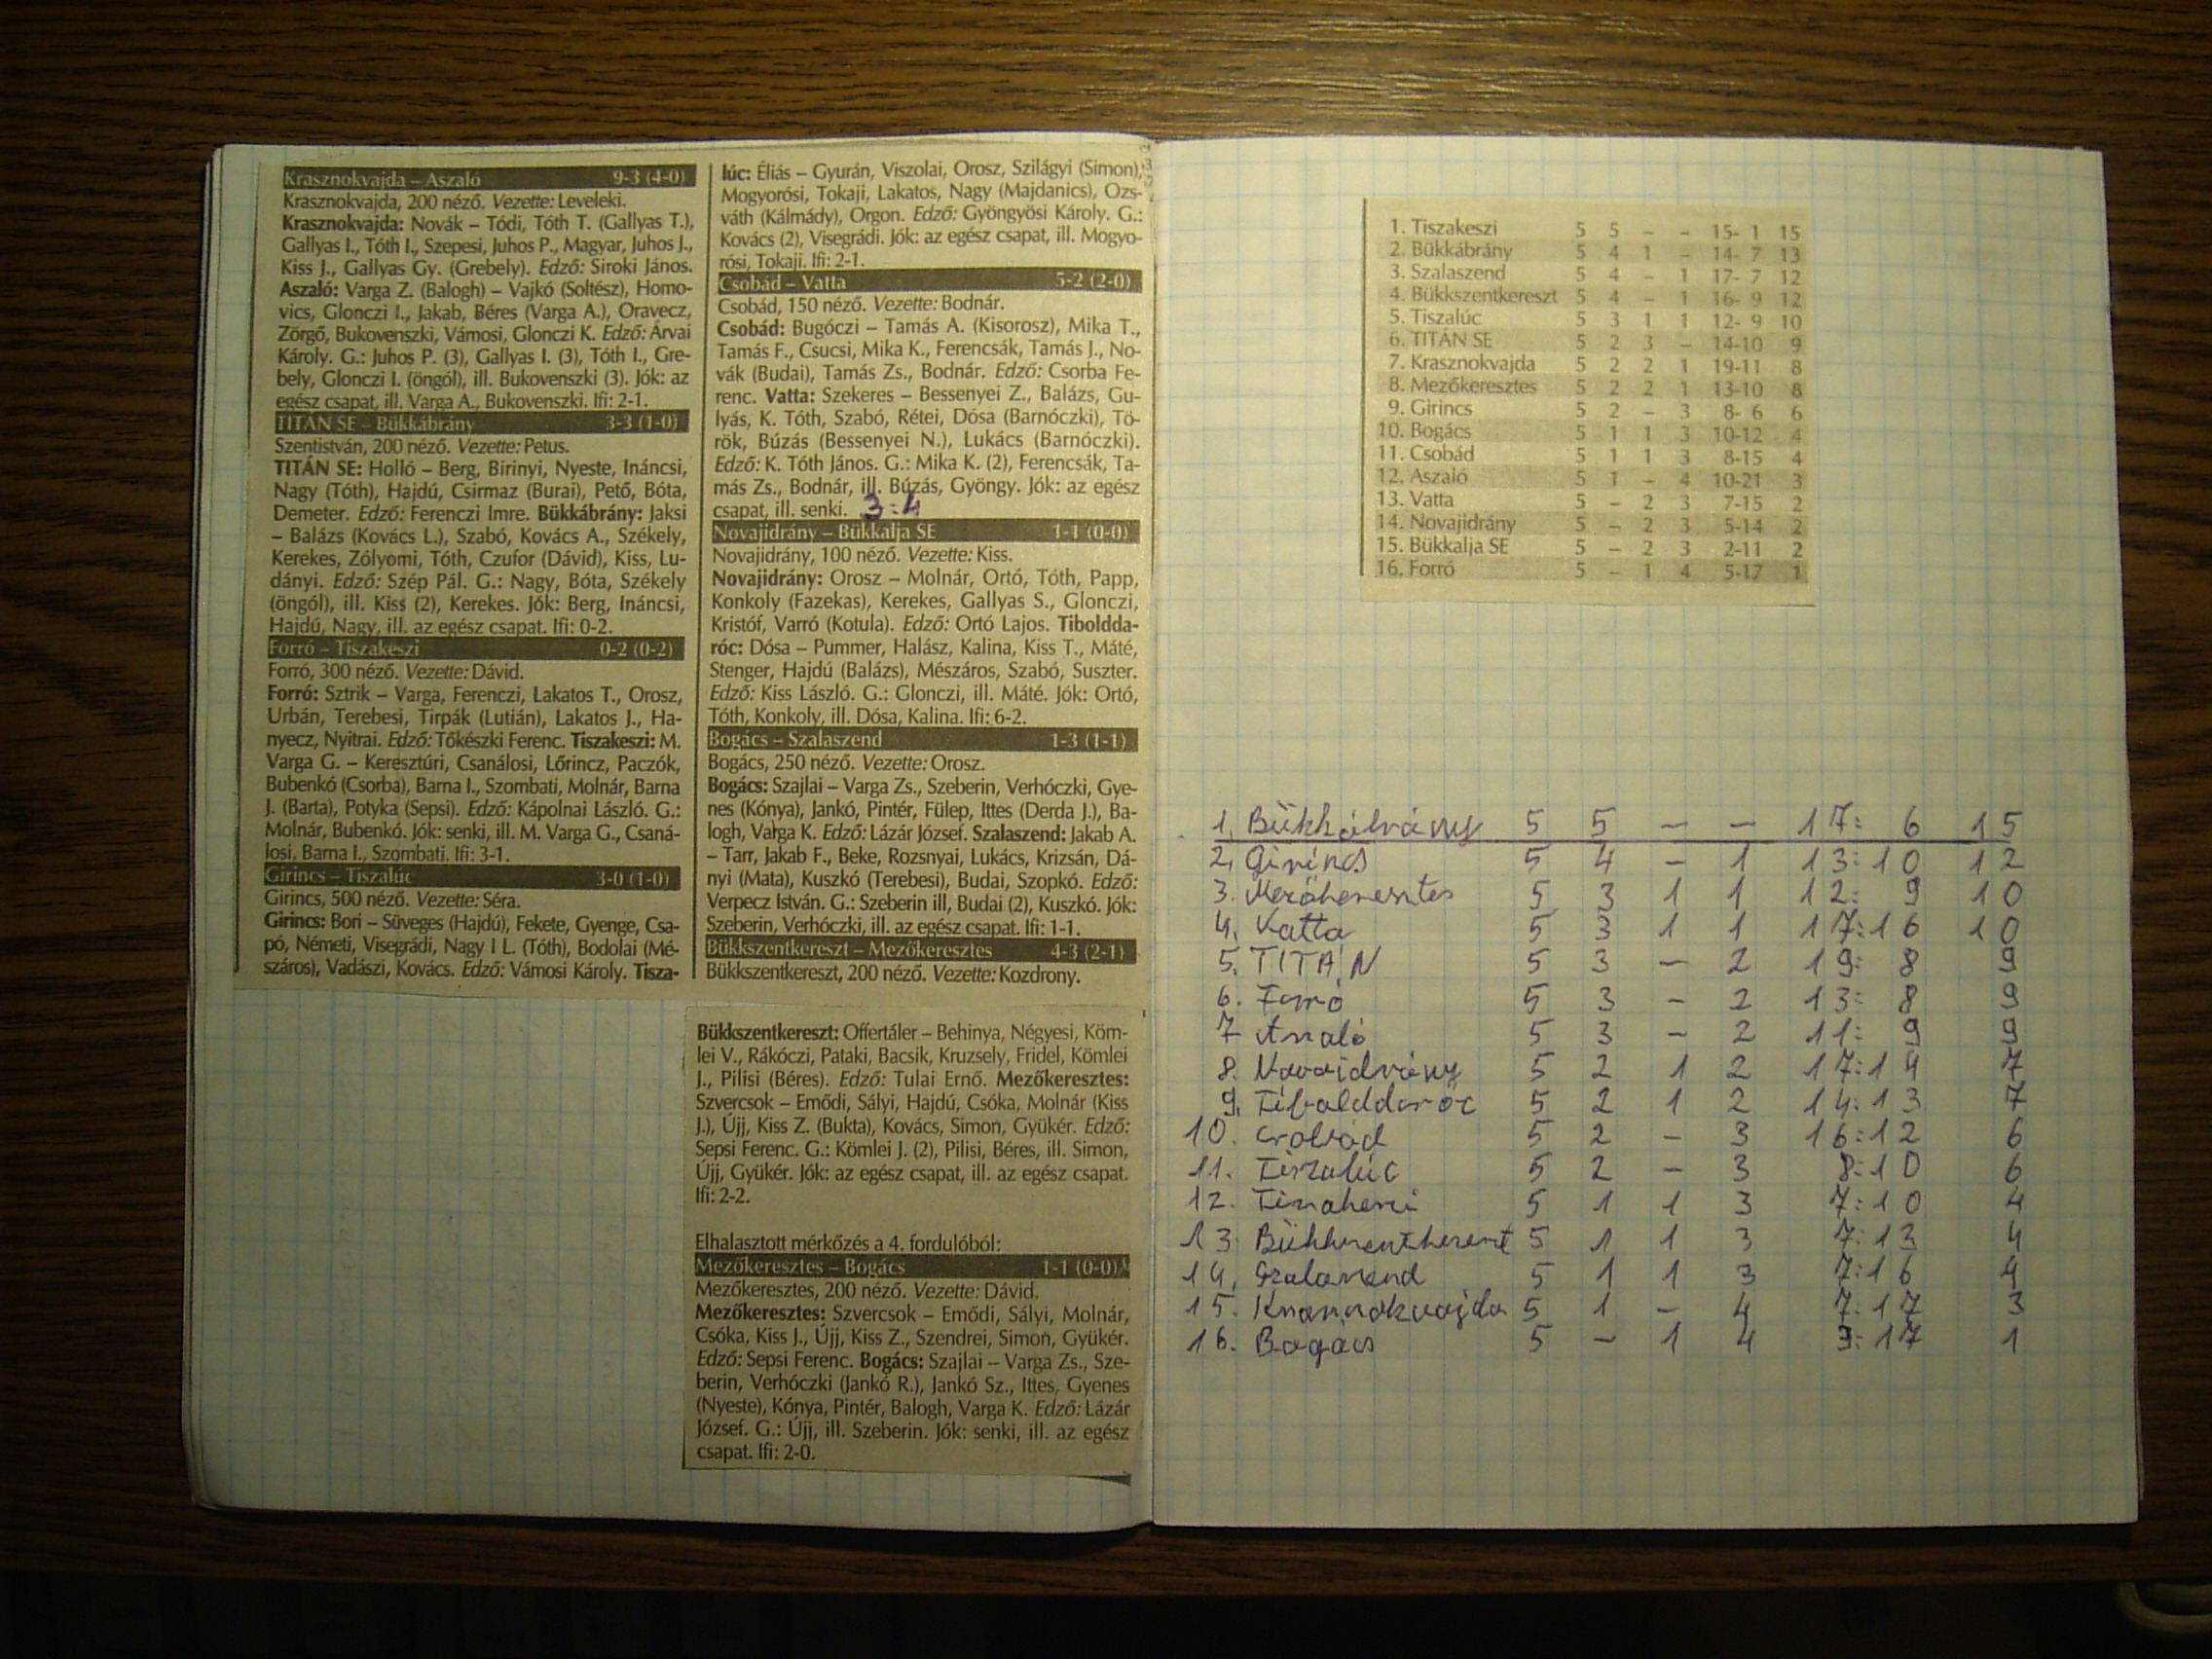 Krasznokvajda – Aszaló 9-3 (4-0)
Krasznokvajda, 200 néző. Vezette: Leveleki.
Krasznokvajda: Novák – Tódi, Tóth T. (Gallyas T.),
Gallyas I., Tóth I., Szepesi, Juhos P., Magyar, Juhos J.,
Kiss J., Gallyas Gy. (Grebely). Edző: Siroki János.
Aszaló: Varga Z. (Balogh) – Vajkó (Soltész), Homo-
vics, Glonczi I., Jakab, Béres (Varga A.), Oravecz,
Zörgő, Bukovenszki, Vámosi, Glonczi K. Edző: Árvai
Károly. G.: Juhos P. (3), Gallyas I. (3), Tóth I., Gre-
bely, Glonczi I. (öngól), ill. Bukovenszki (3). Jók: az
egész csapat, ill. Varga A., Bukovenszki. Ifi: 2-1.
TITÁN SE – Bükkábrány 3-3 (1-0)
Szentistván, 200 néző. Vezette: Petus.
TITÁN SE: Holló – Berg, Birinyi, Nyeste, Ináncsi,
Nagy (Tóth), Hajdú, Csirmaz (Burai), Pető, Bóta,
Demeter. Edző: Ferenczi Imre. Bükkábrány: Jaksi
– Balázs (Kovács L.), Szabó, Kovács A., Székely,
Kerekes, Zólyomi, Tóth, Czufor (Dávid), Kiss, Lu-
dányi. Edző: Szép Pál. G.: Nagy, Bóta, Székely
(öngól), ill. Kiss (2), Kerekes. Jók: Berg, Ináncsi,
Hajdú, Nagy, ill. az egész csapat. Ifi: 0-2.
Forró – Tiszakeszi 0-2 (0-2)
Forró, 300 néző. Vezette: Dávid.
Forró: Sztrik – Varga, Ferenczi, Lakatos T., Orosz,
Urbán, Terebesi, Tirpák (Lutián), Lakatos J., Ha-
nyecz, Nyitrai. Edző: Tőkészki Ferenc. Tiszakeszi: M.
Varga G. – Keresztúri, Csanálosi, Lőrincz, Paczók,
Bubenkó (Csorba), Barna I., Szombati, Molnár, Barna
J. (Barta), Potyka (Sepsi). Edző: Kápolnai László. G.:
Molnár, Bubenkó. Jók: senki, ill. M. Varga G., Csaná-
losi, Barna I., Szombati. Ifi: 3-1.
Girincs – Tiszalúc 3-0 (1-0)
Girincs, 500 néző. Vezette: Séra.
Girincs: Bori – Süveges (Hajdú), Fekete, Gyenge, Csa-
pó, Németi, Visegrádi, Nagy I L. (Tóth), Bodolai (Mé-
száros), Vadászi, Kovács. Edző: Vámosi Károly. Tisza-
lúc: Éliás – Gyurán, Viszolai, Orosz, Szilágyi (Simon),
Mogyorósi, Tokaji, Lakatos, Nagy (Majdanics), Ozs-
váth (Kálmády), Orgon. Edző: Gyöngyösi Károly. G.:
Kovács (2), Visegrádi. Jók: az egész csapat, ill. Mogyo-
rósi, Tokaji. Ifi: 2-1.
Csobád – Vatta 5-2 (2-0)
Csobád, 150 néző. Vezette: Bodnár.
Csobád: Bugóczi – Tamás A. (Kisorosz), Mika T.,
Tamás F., Csucsi, Mika K., Ferencsák, Tamás J., No-
vák (Budai), Tamás Zs., Bodnár. Edző: Csorba Fe-
renc. Vatta: Szekeres – Bessenyei Z., Balázs, Gu-
lyás, K. Tóth, Szabó, Rétei, Dósa (Barnóczki), Tö-
rök, Búzás (Bessenyei N.), Lukács (Barnóczki).
Edző: K. Tóth János. G.: Mika K. (2), Ferencsák, Ta-
más Zs., Bodnár, ill. Búzás, Gyöngy. Jók: az egész
csapat, ill. senki. 3:4
Novajidrány – Bükkalja SE 1-1 (0-0)
Novajidrány, 100 néző. Vezette: Kiss.
Novajidrány: Orosz – Molnár, Ortó, Tóth, Papp,
Konkoly (Fazekas), Kerekes, Gallyas S., Glonczi,
Kristóf, Varró (Kotula). Edző: Ortó Lajos. Tiboldda-
róc: Dósa – Pummer, Halász, Kalina, Kiss T., Máté,
Stenger, Hajdú (Balázs), Mészáros, Szabó, Suszter.
Edző: Kiss László. G.: Glonczi, ill. Máté. Jók: Ortó,
Tóth, Konkoly, ill. Dósa, Kalina. Ifi: 6-2.
Bogács – Szalaszend 1-3 (1-1)
Bogács, 250 néző. Vezette: Orosz.
Bogács: Szajlai – Varga Zs., Szeberin, Verhóczki, Gye-
nes (Kónya), Jankó, Pintér, Fülep, Ittes (Derda J.), Ba-
logh, Varga K. Edző: Lázár József. Szalaszend: Jakab A.
– Tarr, Jakab F., Beke, Rozsnyai, Lukács, Krizsán, Dá-
nyi (Mata), Kuszkó (Terebesi), Budai, Szopkó. Edző:
Verpecz István. G.: Szeberin ill, Budai (2), Kuszkó. Jók:
Szeberin, Verhóczki, ill. az egész csapat. Ifi: 1-1.
Bükkszentkereszt – Mezőkeresztes 4-3 (2-1)
Bükkszentkereszt, 200 néző. Vezette: Kozdrony.
Bükkszentkereszt: Offertáler – Behinya, Négyesi, Köm-
lei V., Rákóczi, Pataki, Bacsik, Kruzsely, Fridel, Kömlei
J., Pilisi (Béres). Edző: Tulai Ernő. Mezőkeresztes:
Szvercsok – Emődi, Sályi, Hajdú, Csóka, Molnár (Kiss
J.), Újj, Kiss Z. (Bukta), Kovács, Simon, Gyükér. Edző:
Sepsi Ferenc. G.: Kömlei J. (2), Pilisi, Béres, ill. Simon,
Újj, Gyükér. Jók: az egész csapat, ill. az egész csapat.
Ifi: 2-2.
Elhalasztott mérkőzés a 4. fordulóból:
Mezőkeresztes – Bogács 1-1 (0-0)
Mezőkeresztes, 200 néző. Vezette: Dávid.
Mezőkeresztes: Szvercsok – Emődi, Sályi, Molnár,
Csóka, Kiss J., Újj, Kiss Z., Szendrei, Simon, Gyükér.
Edző: Sepsi Ferenc. Bogács: Szajlai – Varga Zs., Sze-
berin, Verhóczki (Jankó R.), Jankó Sz., Ittes, Gyenes
(Nyeste), Kónya, Pintér, Balogh, Varga K. Edző: Lázár
József. G.: Újj, ill. Szeberin. Jók: senki, ill. az egész
csapat. Ifi: 2-0.
1. Tiszakeszi 5 5 – – 15- 1 15
2. Bükkábrány 5 4 1 – 14- 7 13
3. Szalaszend 5 4 – 1 17- 7 12
4. Bükkszentkereszt 5 4 – 1 16- 9 12
5. Tiszalúc 5 3 1 1 12- 9 10
6. TITÁN SE 5 2 3 – 14-10 9
7. Krasznokvajda 5 2 2 1 19-11 8
8. Mezőkeresztes 5 2 2 1 13-10 8
9. Girincs 5 2 – 3 8- 6 6
10. Bogács 5 1 1 3 10-12 4
11. Csobád 5 1 1 3 8-15 4
12. Aszaló 5 1 – 4 10-21 3
13. Vatta 5 – 2 3 7-15 2
14. Novajidrány 5 – 2 3 5-14 2
15. Bükkalja SE 5 – 2 3 2-11 2
16. Forró 5 – 1 4 5-17 1
1. Bükkábrány 5 5 – – 17: 6 15
2. Girincs 5 4 – 1 13:10 12
3. Mezőkeresztes 5 3 1 1 12: 9 10
4. Vatta 5 3 1 1 17:16 10
5. TITÁN 5 3 – 2 19: 8 9
6. Forró 5 3 – 2 13: 8 9
7 Aszaló 5 3 – 2 11: 9 9
8. Novajidrány 5 2 1 2 17:14 7
9. Tibolddaróc 5 2 1 2 14:13 7
10. Csobád 5 2 – 3 16:12 6
11. Tiszalúc 5 2 – 3 8:10 6
12. Tiszakeszi 5 1 1 3 7:10 4
13. Bükkszentkereszt 5 1 1 3 7:13 4
14. Szalaszend 5 1 1 3 7:16 4
15. Krasznokvajda 5 1 – 4 7:17 3
16. Bogács 5 – 1 4 9:17 1